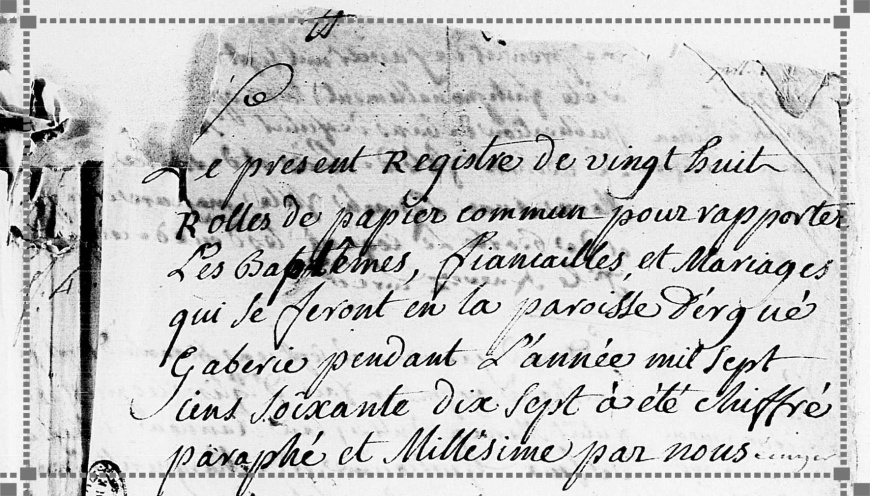 Le present Registre de vingt huit
Rolles de papier commun pour rapporter
Les Baptêmes, fiancailles, et Mariages
qui se feront en la paroisse D'érgué
Gaberic pendant L'année mil sept
cens soixante dix sept à été chiffré
paraphé et Millésime par nous